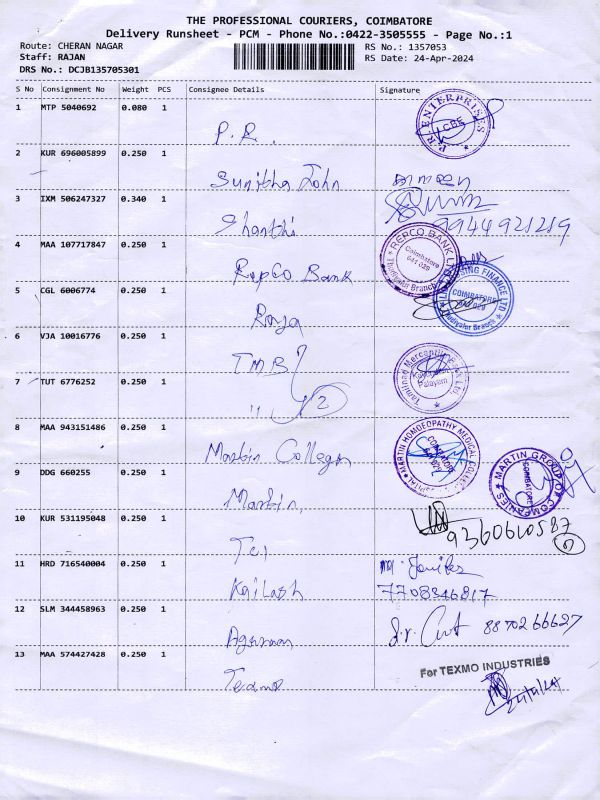 THE PROFESSIONAL COURIERS, COIMBATORE
Delivery Runsheet - PCM - Phone No.:0422-3505555 - Page No.:1
Route: CHERAN NAGAR RS No.: 1357053
Staff: RAJAN RS Date: 24-Apr-2024
DRS No.: DCJB135705301
S No Consignment No Weight PCS Consignee Details Signature
1 MTP 5040692 0.080 1
P.R. P.R. ENTERPRISES CBE
2 KUR 696005899 0.250 1
Sunitha John
3 IXM 506247327 0.340 1
Shanthi 9944921219
4 MAA 107717847 0.250 1
Repco Bank REPCO BANK LTD Coimbatore 641 029 Thudiyalur Branch
5 CGL 6006774 0.250 1
Roja HOUSING FINANCE LTD COIMBATORE Thudiyalur Branch
6 VJA 10016776 0.250 1
TMB Tamilnad Mercantile Bank Ltd. Palayam
7 TUT 6776252 0.250 1
" 2
8 MAA 943151486 0.250 1
Martin College MARTIN HOMOEOPATHY MEDICAL COLLEGE HOSPITAL COIMBATORE
9 DDG 660255 0.250 1
Martin, MARTIN GROUP OF COMPANIES COIMBATORE
10 KUR 531195048 0.250 1
Tei 9360610587
11 HRD 716540004 0.250 1
Kailash 7708346817
12 SLM 344458963 0.250 1
Agarwan 88702 66627
13 MAA 574427428 0.250 1
For TEXMO INDUSTRIES
Texmo 24/4/24